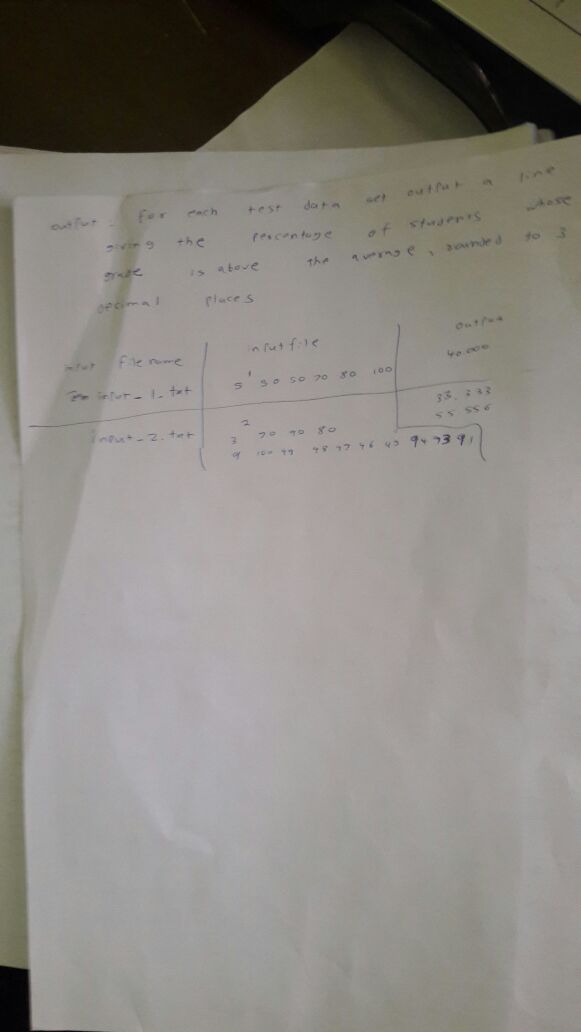 output: For each test data set output a line
giving the percentage of students whose
grade is above the average, rounded to 3
decimal places
input file name input file output
1 40.000
input_1.txt 5 50 50 70 80 100
2 33.333
input_2.txt 3 70 90 80 55.556
9 100 99 98 97 96 95 94 93 91